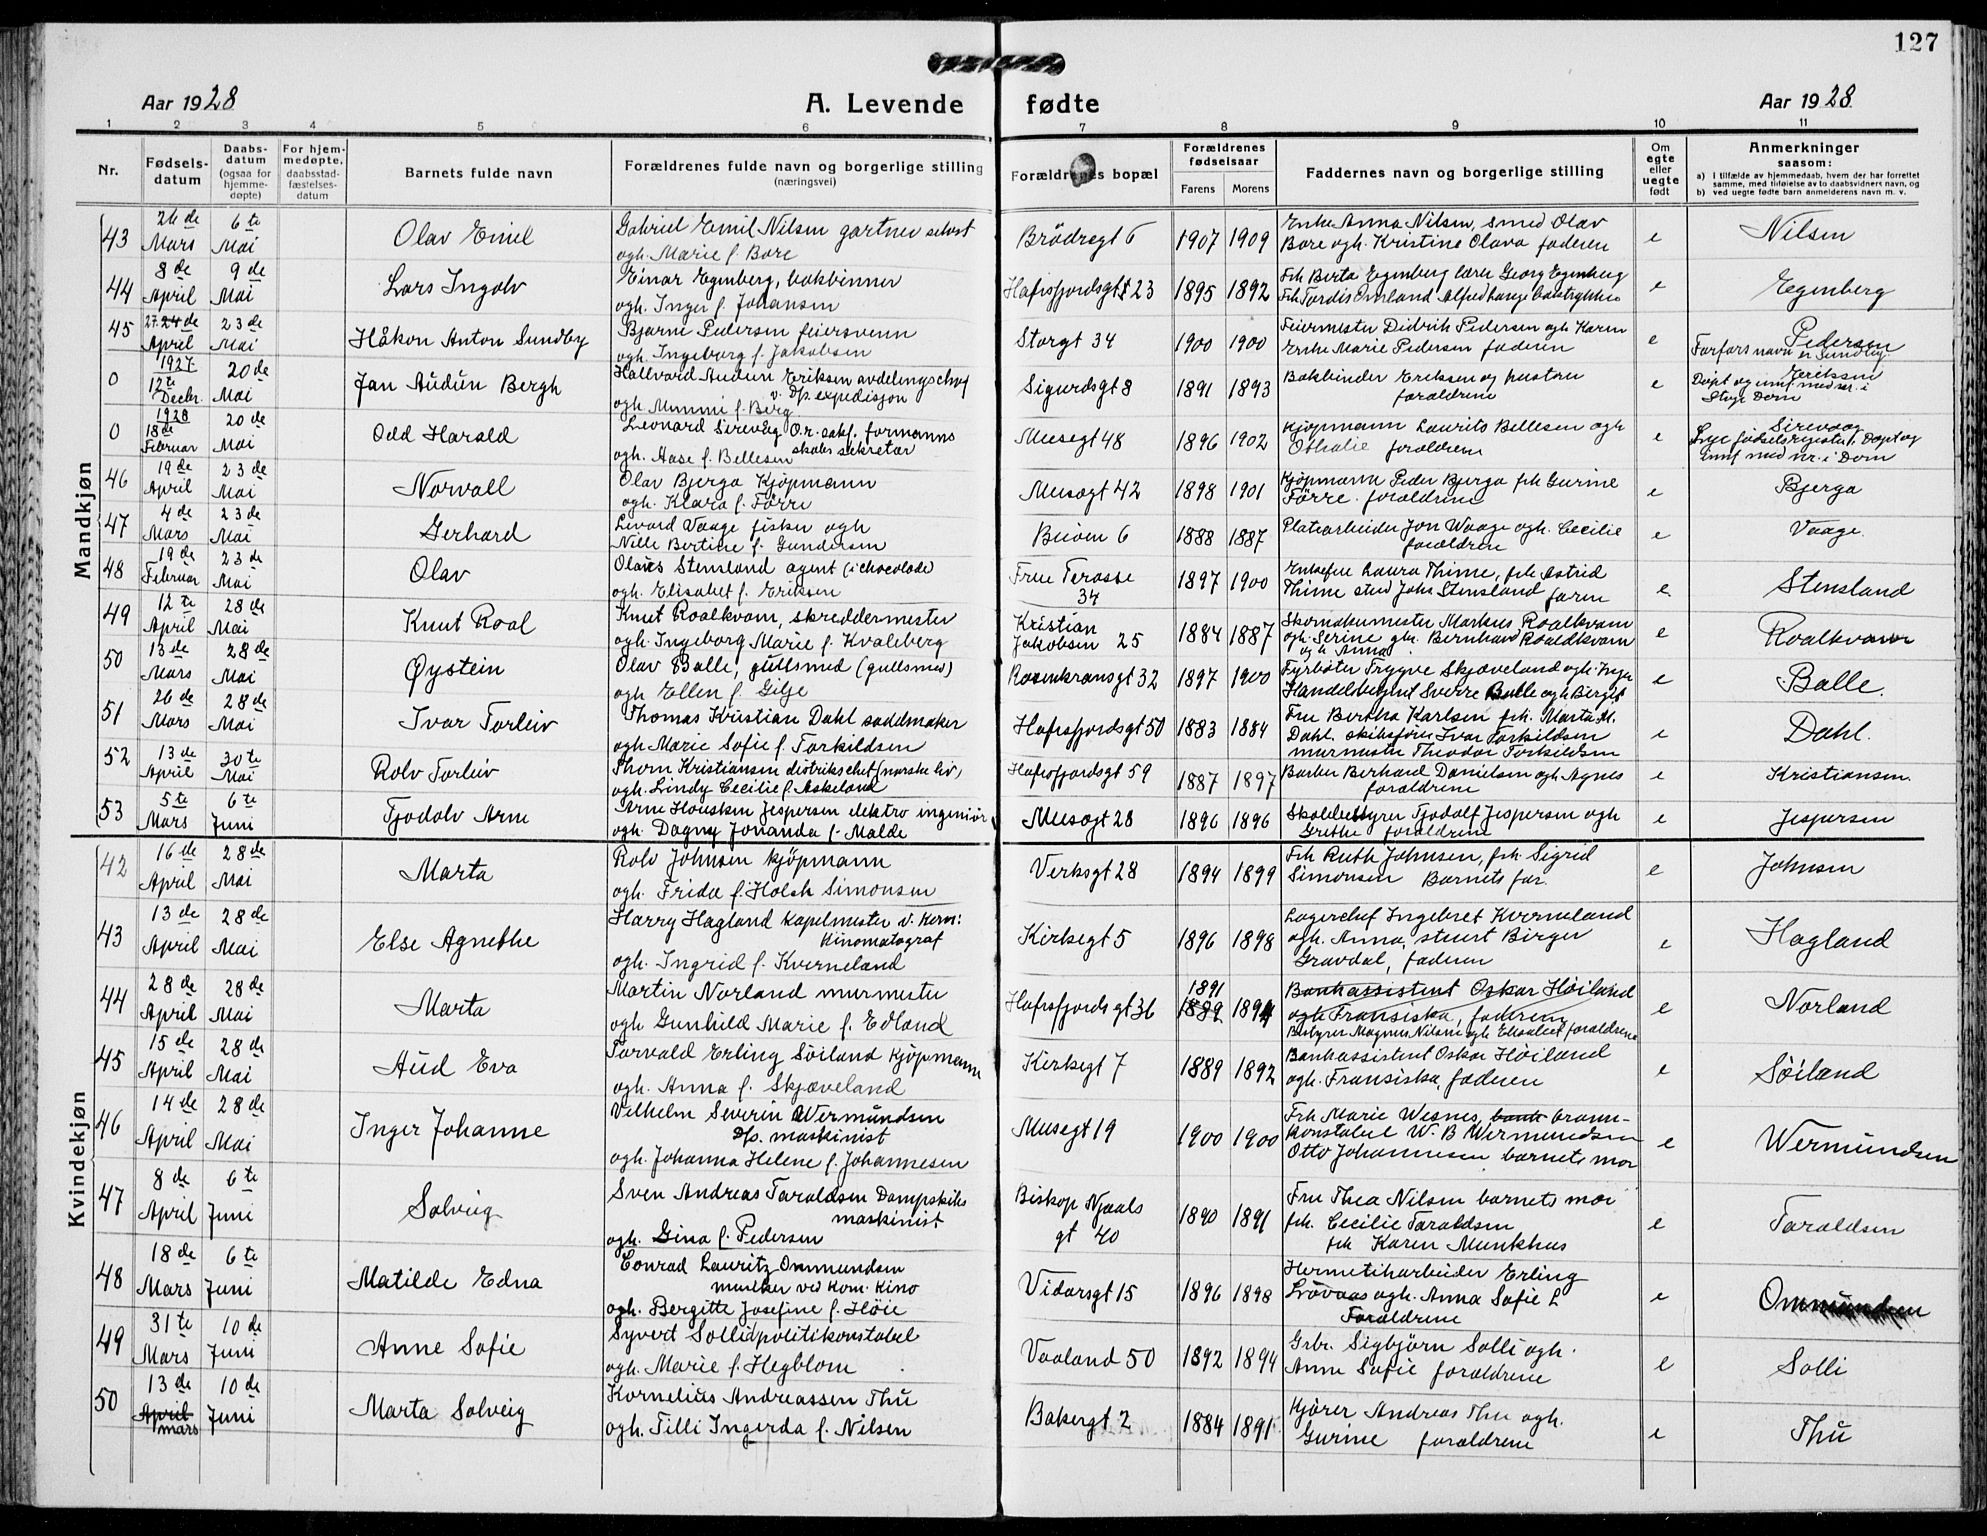 127
Aar 1928 A. Levende fødte Aar 1928
1 2 3 4 5 6 7 8 9 10 11
Nr. Fødselsdatum Daabsdatum (ogsaa for hjemmedøpte) For hjemmedøpte, daabsstadfæstelsesdatum Barnets fulde navn Forældrenes fulde navn og borgerlige stilling (næringsvei) Forældrenes bopæl Forældrenes fødselsaar Farens Morens Faddernes navn og borgerlige stilling Om egte eller uegte født Anmerkninger saasom:
a) I tilfælde av hjemmedaab, hvem der har forrettet samme, med tilføielse av to daabsvidners navn, og
b) ved uegte fødte barn anmelderens navn m. v.
Mandkjøn
43 26de Mars 6te Mai Olav Emil Gabriel Emil Nilsen gartner selvst Brødregt 6 1907 1909 Enke Anna Nilsen, smed Olav e Nilsen
ogh. Marie f. Bore Bore ogh. Kristine Olava faderen
44 8de April 9de Mai Lars Ingolv Einar Egenberg, bokbinner Hafrsfjordsgt 23 1895 1892 Frk Berta Egenberg lærer Georg Egenberg e Egenberg
ogh. Inger f. Johansen Frk Tordis Omland Alfred Lange boktrykker
45 27. 24de April 23de Mai Håkon Anton Sundby Bjarne Pedersen feiersvenn Storgt 34 1900 1900 Feiermester Didrik Pedersen ogh Karen e Pedersen
ogh. Ingeborg f. Jakobsen Enke Marie Pedersen faderen Farfars navn er Sundby
0 1927 12te Decbr. 20de Mai Jan Audun Bergh Hallvard Audun Eriksen avdelingschef v. Dps. expedisjon Sigurdsgt 8 1891 1893 Bokbinder Eriksen og hustru e Eriksen
ogh. Mummi f. Berg. forældrene Døpt og innf med nr. i Stvgr Dom
0 1928 18de Februar 20de Mai Odd Harald Leonard Sirevåg O.r. sakf. formanns Musegt 48 1896 1902 Kjøpmann Laurits Bellesen ogh e Sirevaag
ogh. Aase f. Bellesen skoles sekretær Othalie forældrene Stvgr fødselsregister f. Døpt og innf med nr. i Dom
46 19de April 23de Mai Norvall Olav Bjerga Kjøpmann Musegt 42 1898 1901 Kjøpmann Peder Bjerga frk Gurine e Bjerga
ogh. Klara f. Førre Førre. forældrene
47 4de Mars 23de Mai Gerhard Livard Vaage fisker ogh Buøen 6 1888 1887 Platearbeider Jon Waage ogh. Cecilie e Vaage.
Nille Bertine f. Gundersen forældrene
48 19de Februar 23de Mai Olav Olaves Stensland agent (i chocolade) Frue Terasse 34 1897 1900 Enkefru Laura Thime, frk Astrid e Stensland
ogh. Elisabet f. Eriksen Thime stud John Stensland faren
49 12te April 28de Mai Knut Roal Knut Roalkvam, skreddermester Kristian Jakobsen 25 1884 1887 Skomakermester Markus Roalkvam e Roalkvam
ogh. Ingeborg Marie f. Kvaleberg ogh. Serine gbr. Bernhard Roaldkvam ogh Anna
50 13de Mars 28de Mai Øystein Olav Balle, gullsmed (gullsmed) Rosenkransgt 32 1897 1900 Fyrbøter Trygve Skjæveland ogh. Inger e Balle.
ogh Ellen f. Gilje Handelsbetjent Sverre Balle ogh Berget
51 26de Mars 28de Mai Ivar Torleiv Thomas Kristian Dahl saddmaker Hafrsfjordsgt 50 1883 1884 Fru Bertha Karlsen frk. Marta M. e Dahl.
ogh Marie Sofie f. Torkildsen Dahl. skibsfører Ivar Torkildsen murmester Theodor Torkildsen
52 13de April 30te Mai Rolv Torleiv Thom Kristiansen distriktschef (norske liv) Hafrsfjordsgt 59 1887 1897 Barber Berhard Danielsen ogh Agnes e Kristiansen.
ogh. Lindy Cecilie f. Askeland forældrene
53 5te Mars 6te Juni Tjodolv Arne Arne Housken Jespersen elektro ingeniør Musegt 28 1896 1896 Skolebestyrer Tjodolf Jespersen ogh e Jespersen
ogh. Dagny Jonanda f. Malde Grethe forældrene
Kvindekjøn
42 16de April 28de Mai Marta Rolv Johnsen kjøpmann Verksgt 28 1894 1899 Frk Ruth Johnsen, frk. Sigrid e Johnsen
ogh. Frida f. Holck Simonsen Simonsen Barnets far.
43 13de April 28de Mai Else Agnethe Harry Hagland kapelmester v. kom: Kinomatograf Kirkegt 5 1896 1898 Lagerchef Ingebret Kverneland e Hagland
ogh. Ingrid f. Kverneland ogh. Anna, stuert Birger Gravdal, faderen
44 28de April 28de Mai Marta Martin Norland murmester Hafrsfjordsgt 36 1891 1889 1894 Bankassistent Oskar Høiland e Norland
ogh Gunhild Marie f. Edland ogh Fransiska, faderen
Bestyrer Magnus Nilsen ogh Elisabet forældrene
45 15de April 28de Mai Aud Eva Torvald Erling Søiland Kjøpmann Kirkegt 7 1889 1892 Bankassistent Oskar Høiland e Søiland
ogh. Anna f. Skjæveland ogh. Fransiska, faderen
46 14de April 28de Mai Inger Johanne Vilhelm Severin Wermundsen Dps. maskinist Musegt 19 1900 1900 Frk Marie Wesnes, bank brann- e Wermundsen
ogh. Johanna Helene f. Johannesen konstabel W. B Wermundsen Otto Johannesen barnets mor
47 8de April 6te Juni Solveig Sven Andreas Taraldsen Dampskibs maskinist Biskop Njaals gt 40 1890 1891 Fru Thea Nilsen barnets mor e Taraldsen
ogh. Gina f. Pedersen frk. Cecilie Taraldsen frk Karen Munkhus
48 18de Mars 6te Juni Matilde Edna Conrad Lauritz Ommundsen musiker ved kom. Kino Vidarsgt 15 1896 1898 Hermetikarbeider Erling e Ommundsen
ogh. Bergitte Josefine f. Høie Løvaas ogh. Anna Sofie L Forældrene
49 31te Mars 10de Juni Anne Sofie Syvert Sollid politikonstabel Vaaland 50 1892 1894 Grbr. Sigbjørn Solli ogh. e Solli
ogh. Marie f. Hegblom Anne Sofie forældrene
50 13de April mars 10de Juni Marta Solveig Kornelius Andreassen Thu Bakergt 2 1884 1891 Kjører Andreas Thu ogh. e Thu
ogh. Tilli Ingerda f. Nilsen Gurine forældrene